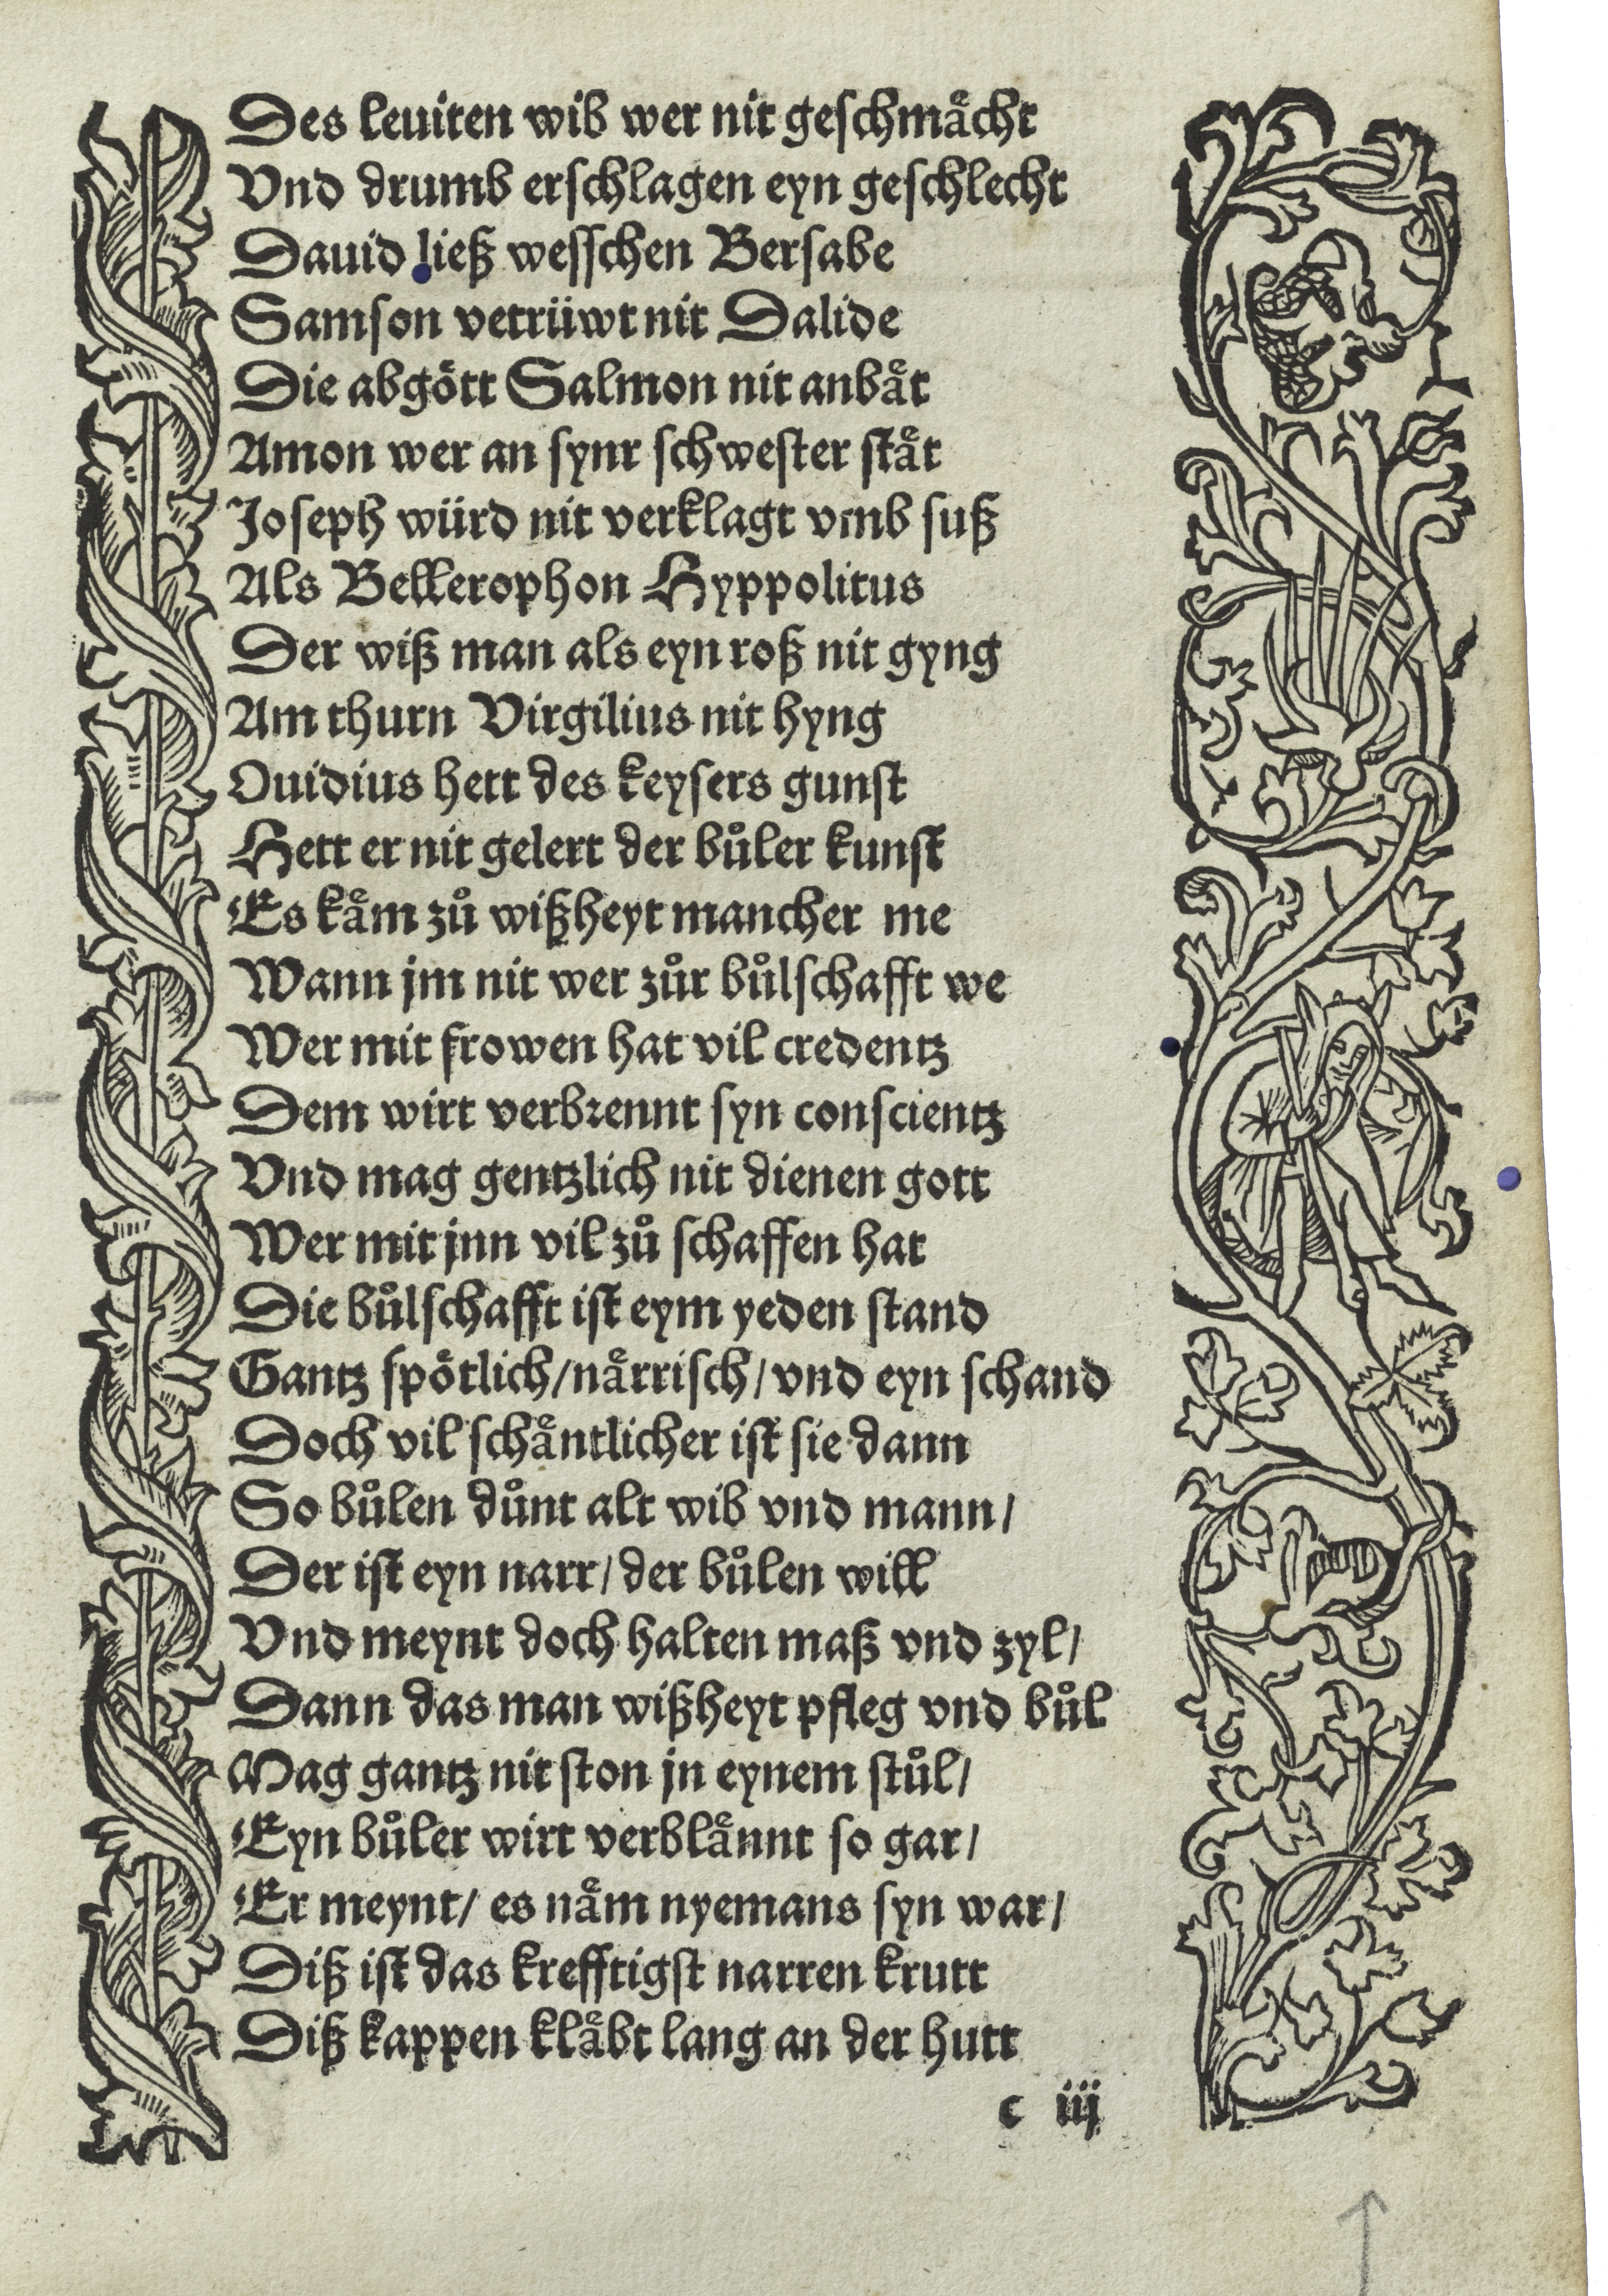 Des leuiten wib wer nit geschmaͤcht
Vnd drumb erschlagen eyn geschlecht
Dauid ließ wesschen Bersabe
Samson vetrüwt nit Dalide
Die abgoͤtt Salmon nit anbaͤt
Amon wer an synr schwester staͤt
Joseph würd nit verklagt vmb suß
Als Bellerophon Hyppolitus
Der wiß man als eyn roß nit gyng
Am thurn Virgilius nit hyng
Ouidius hett des keysers gunst
Hett er nit gelert der buͦler kunst
Es kaͤm zuͦ wißheyt mancher me
Wann jm nit wer zuͦr buͦlschafft we
Wer mit frowen hat vil credentz
Dem wirt verbrennt syn conscientz
Vnd mag gentzlich nit dienen gott
Wer mit jnn vil zuͦ schaffen hat
Die buͦlschafft ist eym yeden stand
Gantz spoͤtlich/naͤrrisch/vnd eyn schand
Doch vil schaͤntlicher ist sie dann
So buͦlen duͦnt alt wib vnd mann/
Der ist eyn narr/der buͦlen will
Vnd meynt doch halten maß vnd zyl/
Dann das man wißheyt pfleg vnd buͦl
Mag gantz nit ston jn eynem stuͦl/
Eyn buͦler wirt verblaͤnnt so gar/
Er meynt/ es naͤm nyemans syn war/
Diß ist das krefftigst narren krutt
Diß kappen klaͤbt lang an der hutt
c iij